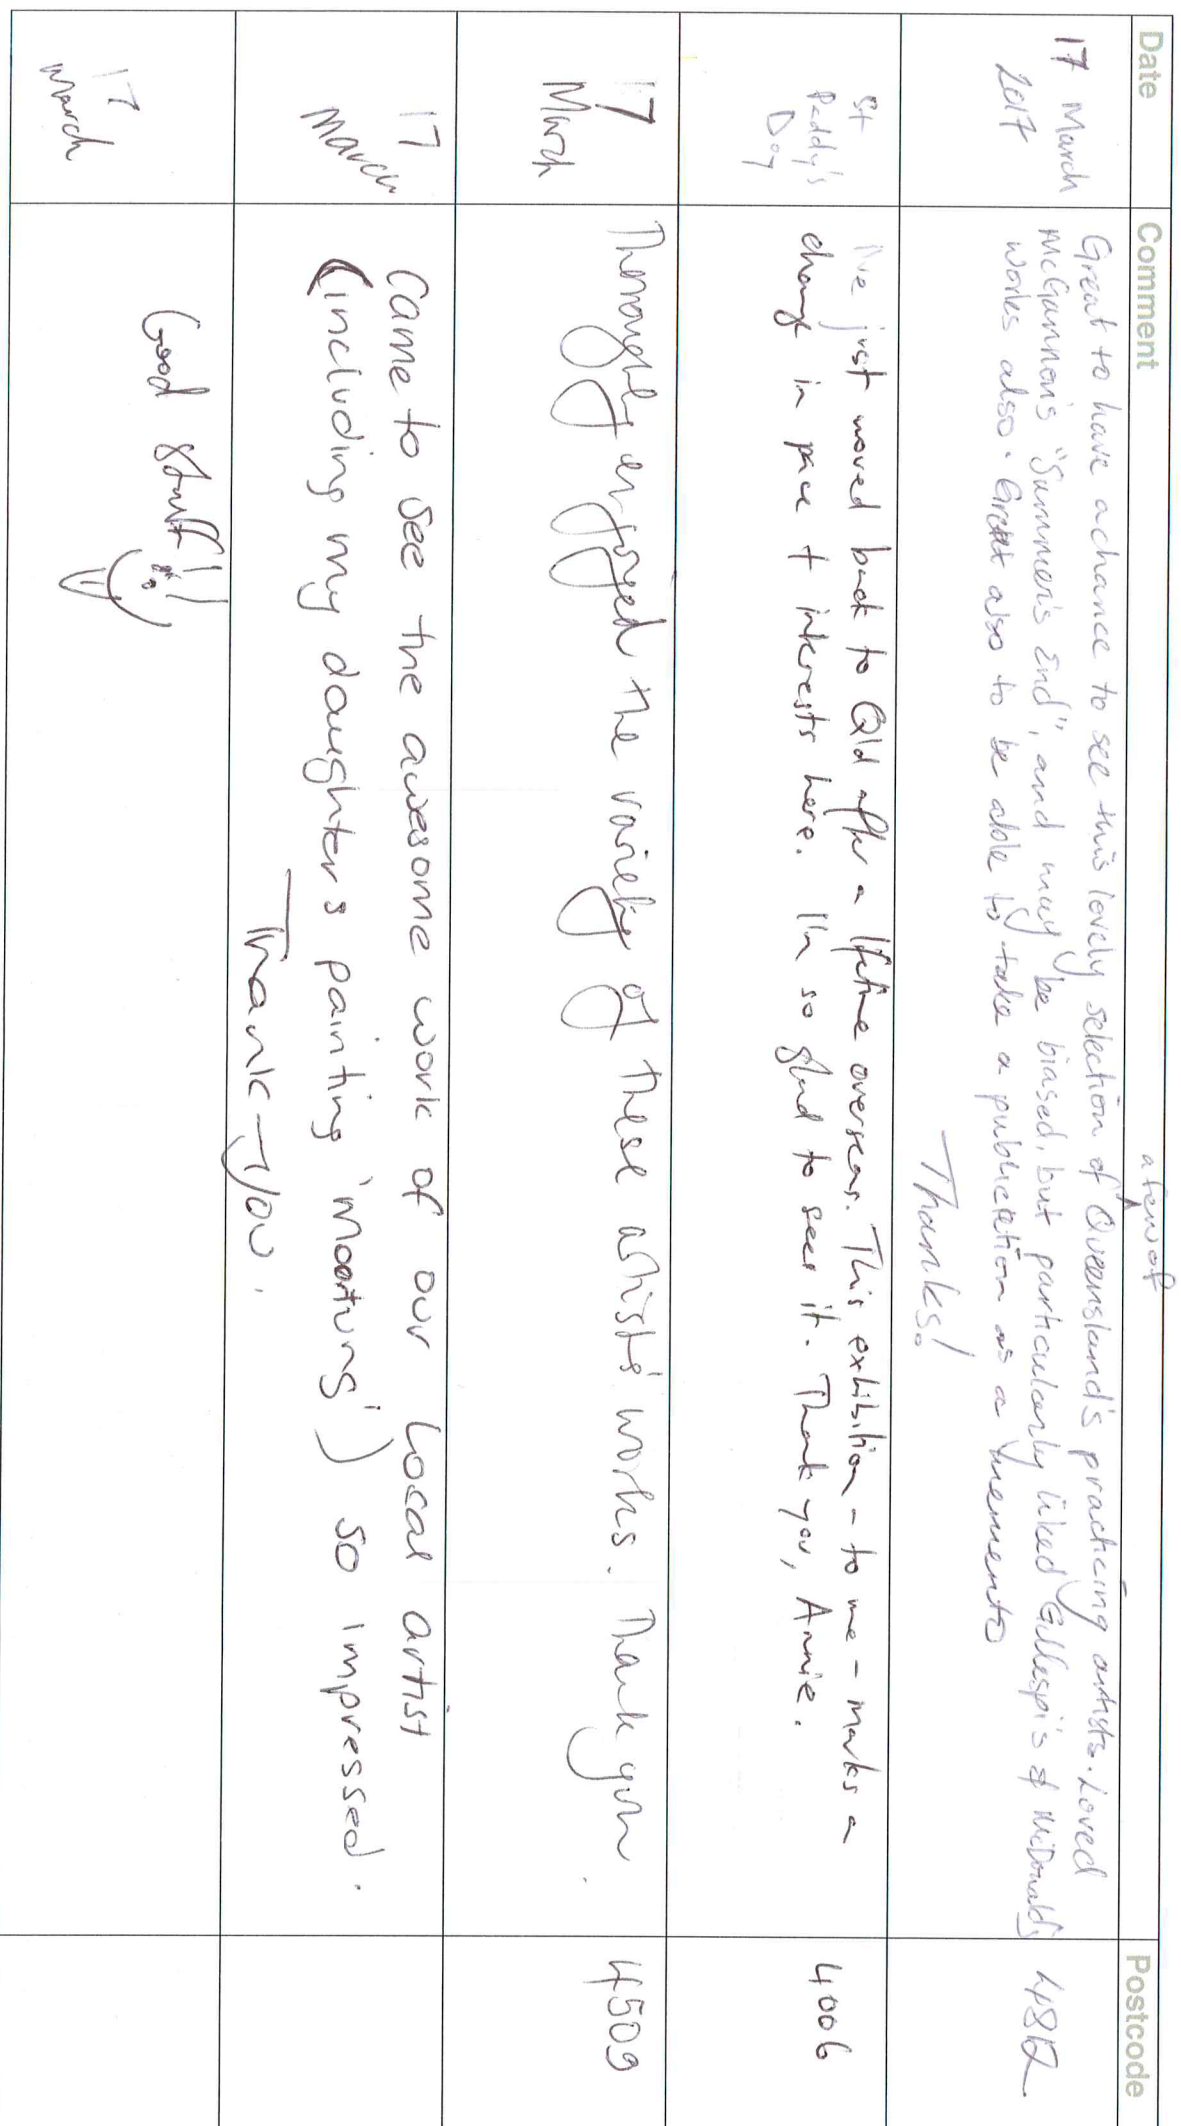 Date Comment Postcode
17 March
2017
a few of
Great to have a chance to see this lovely selection of ^ Queensland's practicing artists. Loved
McGannon's "Summer's End", and may be biased, but particularly liked Gillespi's & McDonald's
works also. Great also to be able to take a publication as a memento
Thanks!
4812
St
Paddy's
Day
I've just moved back to Qld after a lifetime overseas. This exhibition - to me - marks a
change in pace + interests here. I'm so glad to see it. Thank you, Annie.
4006
17
March
Thoroughly enjoyed the variety of these artists' works. Thank you.
4509
17
March
Came to see the awesome work of our local artist
(including my daughters painting 'moortung') so impressed.
Thank-you.
17
March
Good stuff!!